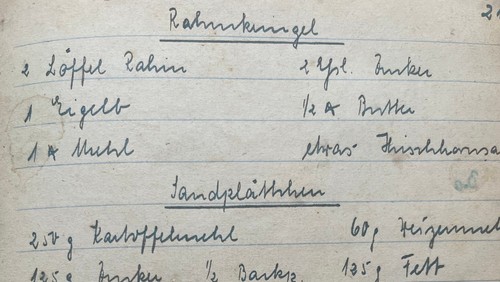 Rahmkringel
2 Löffel Rahm 2 Eßl. Zucker
1 Eigelb ½ ℔ Butter
1 ℔ Mehl etwas Hirschhornsa
Sandplättchen
250 g Kartoffelmehl 60 g Weizenmehl
125 g Zucker ½ Backp. 125 g Fett